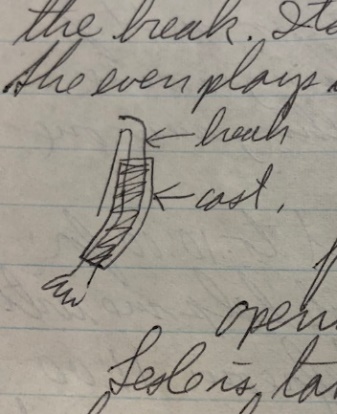 the break. Its
the even plays
break
cast.
open
Leslie is tak